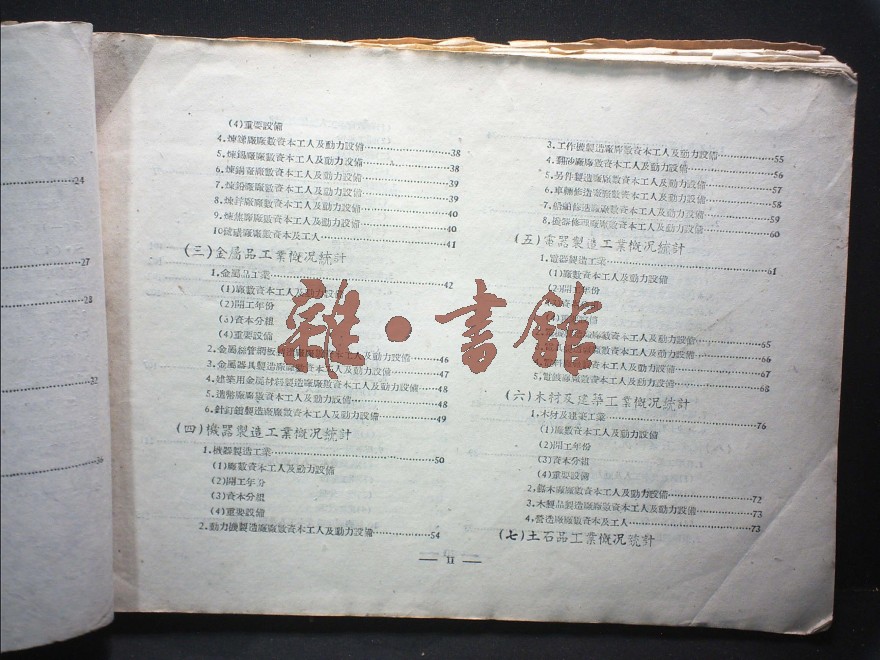 24
27
28
32
36
(4)重要設備
4.煉銻廠廠數資本工人及動力設備 38
5.煉錫廠廠數資本工人及動力設備 38
6.煉銅廠廠數資本工人及動力設備 39
7.煉鉛廠廠數資本工人及動力設備 39
8.煉鋅廠廠數資本工人及動力設備 40
9.煉焦廠廠數資本工人及動力設備 40
廠數資本及工人 41
(三)金属品工業概况統計
1.金屬品工業 42
(1)廠數資本工人及動力設備
(2)開工年份
(3)資本分組
(4)重要設備
2.金屬 製造廠廠數資本工人及動力設備 46
3.金屬器具製造廠廠數資本工人及動力設備 47
4.建築用金屬材料製造廠廠數資本工人及動力設備 48
5.造幣廠廠數資本工人及動力設備 48
6.針釘 製造廠廠數資本工人及動力設備 49
(四)機器製造工業概况統計
1.機器製造工業 50
(1)廠數資本工人及動力設備
(2)開工年分
(3)資本分組
(4)重要設備
2.動力機製造廠廠數資本工人及動力設備 54
3.工作機製造廠廠數資本工人及動力設備 55
4.翻砂廠廠數資本工人及動力設備 56
5.另件製造廠廠數資本工人及動力設備 57
6.車輛修造廠廠數資本工人及動力設備 58
7.船舶修造廠廠數資本工人及動力設備 59
8.機器修理廠廠數資本工人及動力設備 60
(五)電器製造工業概况統計
1.電器製造工業 61
(1)廠數資本工人及動力設備
(2)開工年份
廠數資本工人及動力設備 65
廠數資本工人及動力設備 66
廠數資本工人及動力設備 67
5.電鍍廠廠數資本工人及動力設備 68
(六)木材及建築工業概况統計
1.木材及建築工業 76
(1)廠數資本工人及動力設備
(2)開工年份
(3)資本分組
(4)重要設備
2.鋸木廠廠數資本工人及動力設備 72
3.木製品製造廠廠數資本工人及動力設備 73
4.營造廠廠數資本及工人 73
(七)土石品工業概况統計
— II —
雜·書館